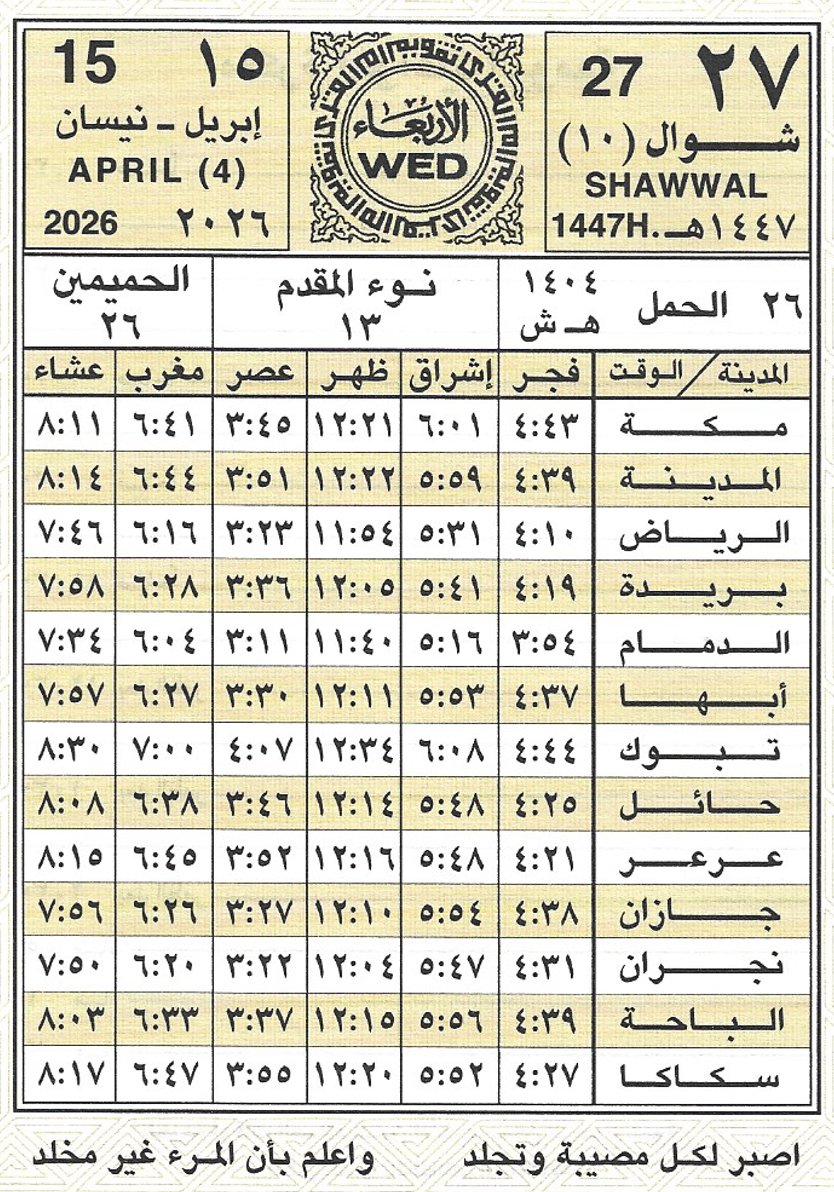 ٢٧ 27
شوال (١٠)
SHAWWAL
1447H. ١٤٤٧هـ
تقويم أم القرى
الأربعاء
WED
15 ١٥
إبريل - نيسان
APRIL (4)
2026 ٢٠٢٦
٢٦ الحمل ١٤٠٤ هـ ش
نوء المقدم ١٣
الحميمين ٢٦
المدينة / الوقت فجر إشراق ظهر عصر مغرب عشاء
مكة ٤:٤٣ ٦:٠١ ١٢:٢١ ٣:٤٥ ٦:٤١ ٨:١١
المدينة ٤:٣٩ ٥:٥٩ ١٢:٢٢ ٣:٥١ ٦:٤٤ ٨:١٤
الرياض ٤:١٠ ٥:٣١ ١١:٥٤ ٣:٢٣ ٦:١٦ ٧:٤٦
بريدة ٤:١٩ ٥:٤١ ١٢:٠٥ ٣:٣٦ ٦:٢٨ ٧:٥٨
الدمام ٣:٥٤ ٥:١٦ ١١:٤٠ ٣:١١ ٦:٠٤ ٧:٣٤
أبها ٤:٣٧ ٥:٥٣ ١٢:١١ ٣:٣٠ ٦:٢٧ ٧:٥٧
تبوك ٤:٤٤ ٦:٠٨ ١٢:٣٤ ٤:٠٧ ٧:٠٠ ٨:٣٠
حائل ٤:٢٥ ٥:٤٨ ١٢:١٤ ٣:٤٦ ٦:٣٨ ٨:٠٨
عرعر ٤:٢١ ٥:٤٨ ١٢:١٦ ٣:٥٢ ٦:٤٥ ٨:١٥
جازان ٤:٣٨ ٥:٥٤ ١٢:١٠ ٣:٢٧ ٦:٢٦ ٧:٥٦
نجران ٤:٣١ ٥:٤٧ ١٢:٠٤ ٣:٢٢ ٦:٢٠ ٧:٥٠
الباحة ٤:٣٩ ٥:٥٦ ١٢:١٥ ٣:٣٧ ٦:٣٣ ٨:٠٣
سكاكا ٤:٢٧ ٥:٥٢ ١٢:٢٠ ٣:٥٥ ٦:٤٧ ٨:١٧
اصبر لكل مصيبة وتجلد واعلم بأن المرء غير مخلد